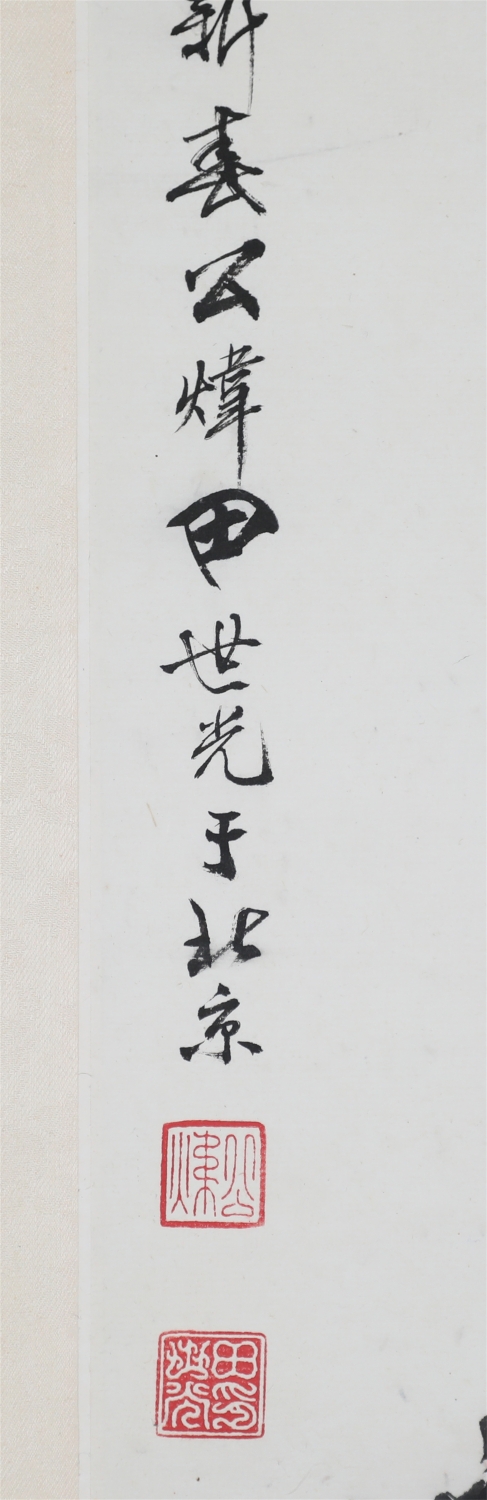 新春公煒田世光于北京
公煒
田世光印